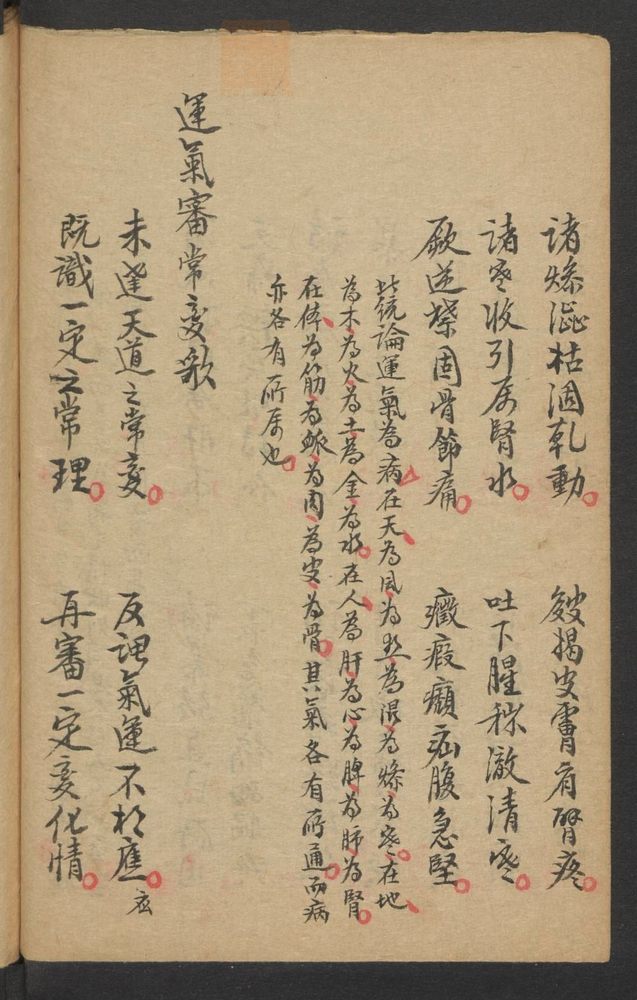 諸燥澁枯涸乹動 皴揭皮膚肩臂疼
諸寒收引属腎水 吐下腥穢澈清寒
厥逆堅固骨節痛 癥瘕癲疝腹急堅
此統論運氣為病在天為風為熱為濕為燥為寒在地
為木為火為土為金為水在人為肝為心為脾為肺為腎
在体為筋為脈為肉為皮為骨其氣各有所通而病
亦各有所属也
運氣審常変歌
未達天道之常変 反謂氣運不相應
既識一定之常理 再審一定変化情